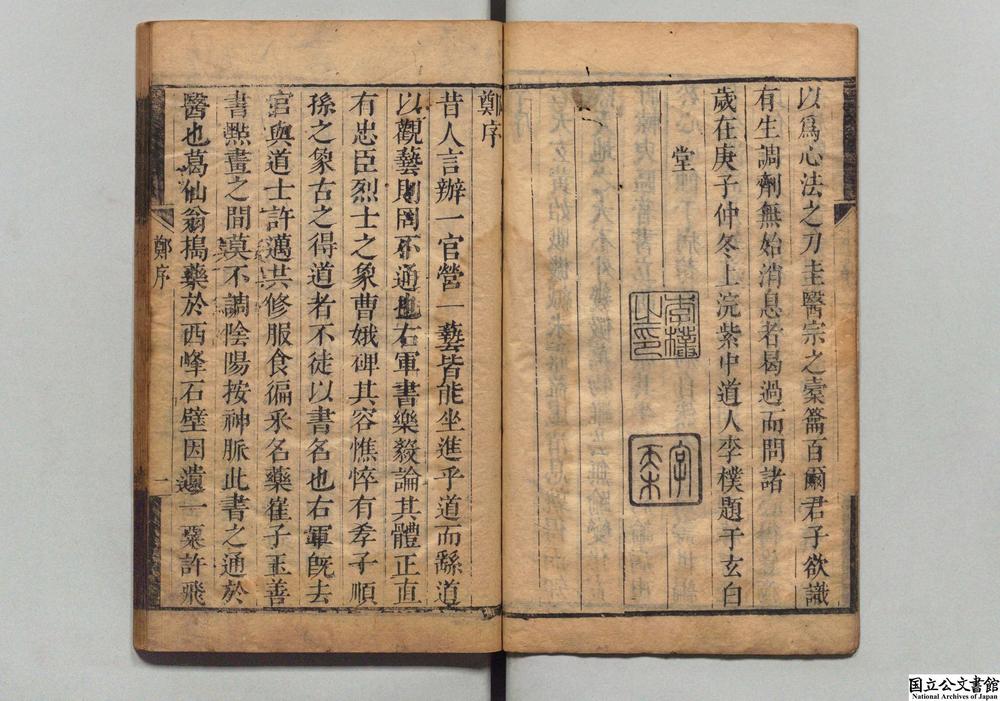 以爲心法之刀圭醫宗之橐籥百爾君子欲識
有生調劑無始消息者曷過而問諸
歲在庚子仲冬上浣紫中道人李樸題于玄白
堂
李樸之印
鄭序
昔人言辦一官營一藝皆能坐進乎道而繇道
以觀藝則罔不通也右軍書樂毅論其體正直
有忠臣烈士之象曹娥碑其容憔悴有孝子順
孫之象古之得道者不徒以書名也右軍旣去
官與道士許邁共修服食徧采名藥崔子玉善
書㸃畫之間莫不調陰陽按神脈此書之通於
醫也葛仙翁搗藥於西峰石壁因遺一粟許飛
鄭序
一
国立公文書館
National Archives of Japan